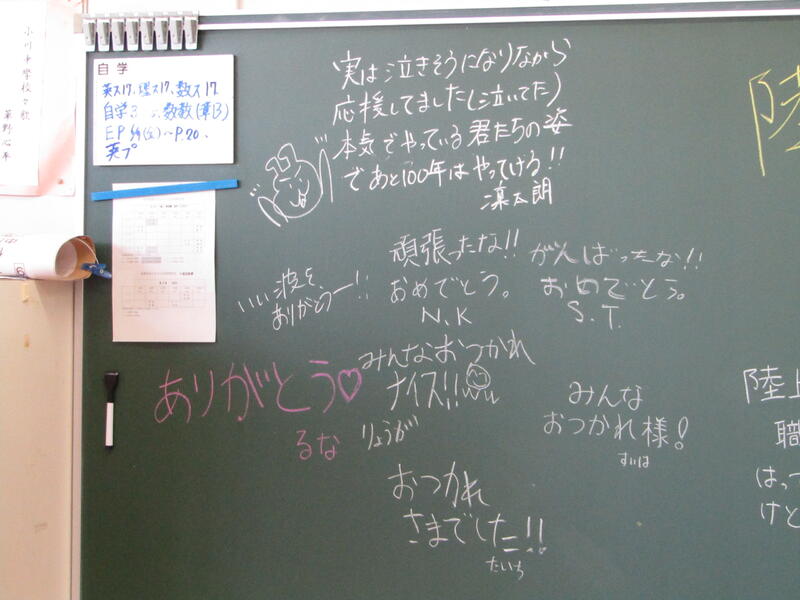 小川中学校々歌
草野心平
自学
英ス17、理ス17、数ス17
自学3
EP
~P.20、
英プ
実は泣きそうになりながら
応援してました(泣いてた)
本気でやっている君たちの姿
であと100年はやってける!!
凛太朗
頑張ったな!!
おめでとう。
N.K
がんばったな!!
おめでとう。
S.T.
いい波を、
ありがとうー!!
ありがとう♡
るな
みんなおつかれ
ナイス!!
りょうが
みんな
おつかれ様!
すいは
おつかれ
さまでした!!
たいち
陸
陸上
職
はっ
けど